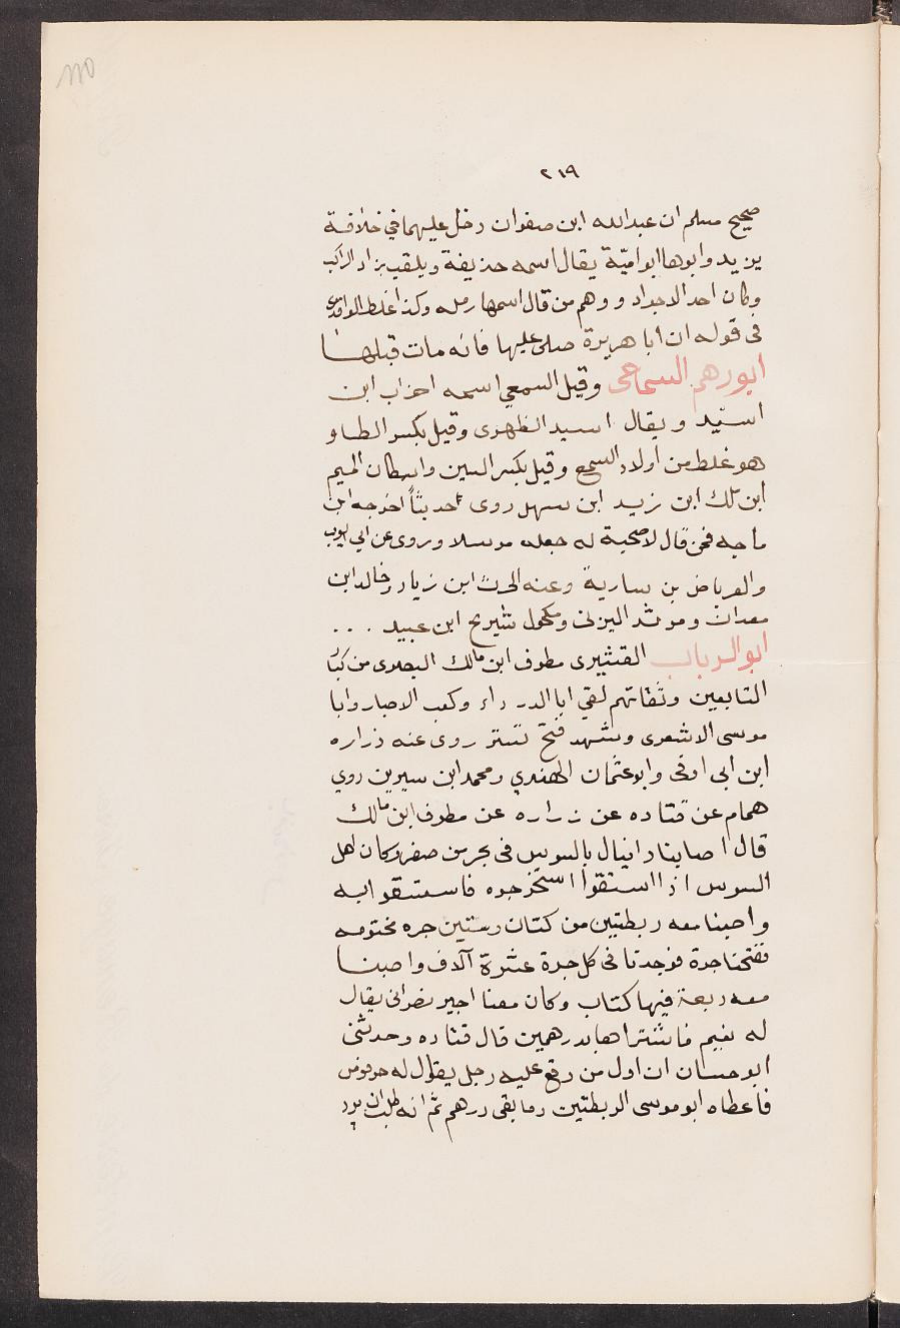 ٢١٩
صحيح مسلم ان عبدالله ابن صفوان دخل عليهما في خلافة
يزيد وابوها ابو اميّة يقال اسمه حذيفة ويلقب بزاد الراكب
وكان احد الاجواد ووهم من قال اسمها رمله وكذا غلط الواقدى
فى قوله ان ابا هريرة صلى عليها فانه مات قبلها
ابورهم السماعى وقيل السمعي اسمه احزاب ابن
اسيد ويقال اسيد الظهرى وقيل بكسر الطا و
هو غلط من اولاد السمع وقيل بكسر السين واسطان الميم
ابن ملك ابن زيد ابن سهل روى حديثاً اخرجه ابن
ماجه فمن قال لا صحبة له جعله مرسلا وروى عن ابي ايوب
والعرباض بن سارية وعنه الحرث ابن زياد وخالد ابن
معدان ومرثد اليزنى ومكحول شريح ابن عبيد ...
ابو الرباب القشيرى مطرف ابن مالك البصرى من كبار
التابعين وثقاتهم لقي ابا الدرداء وكعب الاحبار وابا
موسى الاشعرى وشهد فتح تستر روى عنه زراره
ابن ابى اوفى وابو عثمان الهندي ومحمد ابن سيرين روي
همام عن قتاده عن زراره عن مطرف ابن مالك
قال اصابنا دانيال بالسوس فى بحر من صفر وكان لهل
السوس اذا استقوا استخرجوه فاستسقوا به
واصبنا معه ربطتين من كتان وستين جره مختومه
ففتحنا جرة فوجدنا فى كل جرة عشرة آلاف واصبنا
معه ربعة فيها كتاب وكان معنا اجير نصرانى يقال
له نعيم فاشتراها بدرهمين قال قتاده وحدثنى
ابو حسان ان اول من وقع عليه رجل يقال له حرقوص
فاعطاه ابو موسى الربطتين ومابقى درهم ثم انه طلب ان يرد